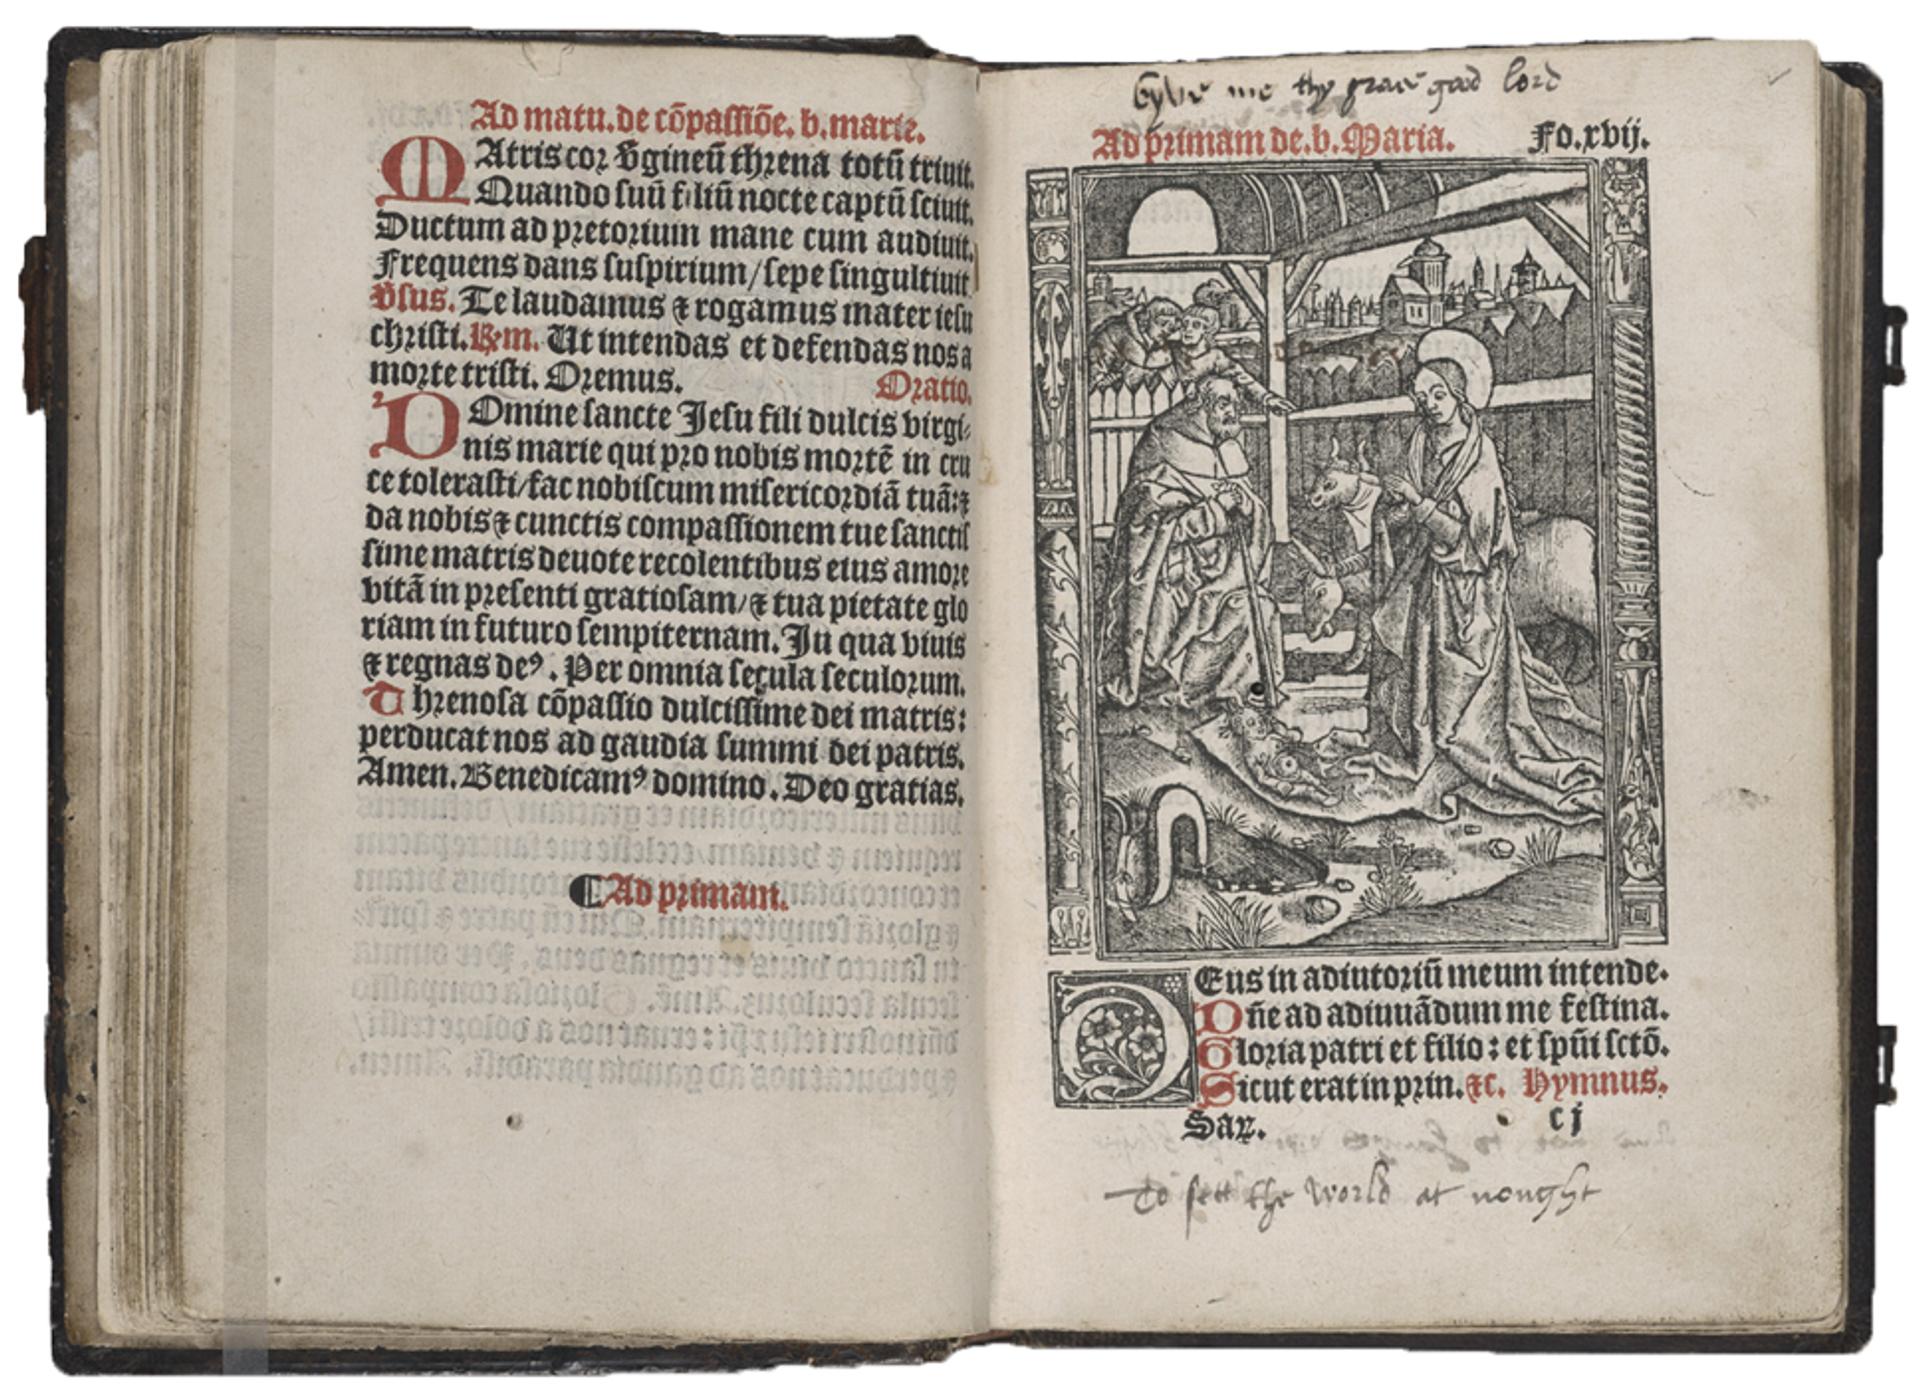 Ad matu. de cõpassiõe. b. marie.
MAtris cor v̾gineũ threna totũ triuit.
Quando suũ filiũ nocte captũ sciuit.
Ductum ad pretorium mane cum audiuit.
Frequens dans suspirium/sepe singultiuit
V̾sus. Te laudamus ⁊ rogamus mater iesu
christi. Rm. Ut intendas et defendas nos a
morte tristi. Oremus. Oratio.
DOmine sancte Jesu fili dulcis virgi⸗
nis marie qui pro nobis mortẽ in cru
ce tolerasti/fac nobiscum misericordiã tuã:⁊
da nobis ⁊ cunctis compassionem tue sanctis
sime matris deuote recolentibus eius amore
vitã in presenti gratiosam/⁊ tua pietate glo
riam in futuro sempiternam. In qua viuis
⁊ regnas deꝰ. Per omnia secula seculorum.
Threnosa cõpassio dulcissime dei matris:
perducat nos ad gaudia summi dei patris.
Amen. Benedicamꝰ domino. Deo gratias.
¶Ad primam.
Gyve me thy grace good lord
Ad primam de. b. Maria. Fo. xvij.
DEus in adiutoriũ meum intende.
Dñe ad adiuuãdum me festina.
Gloria patri et filio: et spũi sctõ.
Sicut erat in prin. ⁊c. Hymnus.
Sar. c j
To sett the world at nought